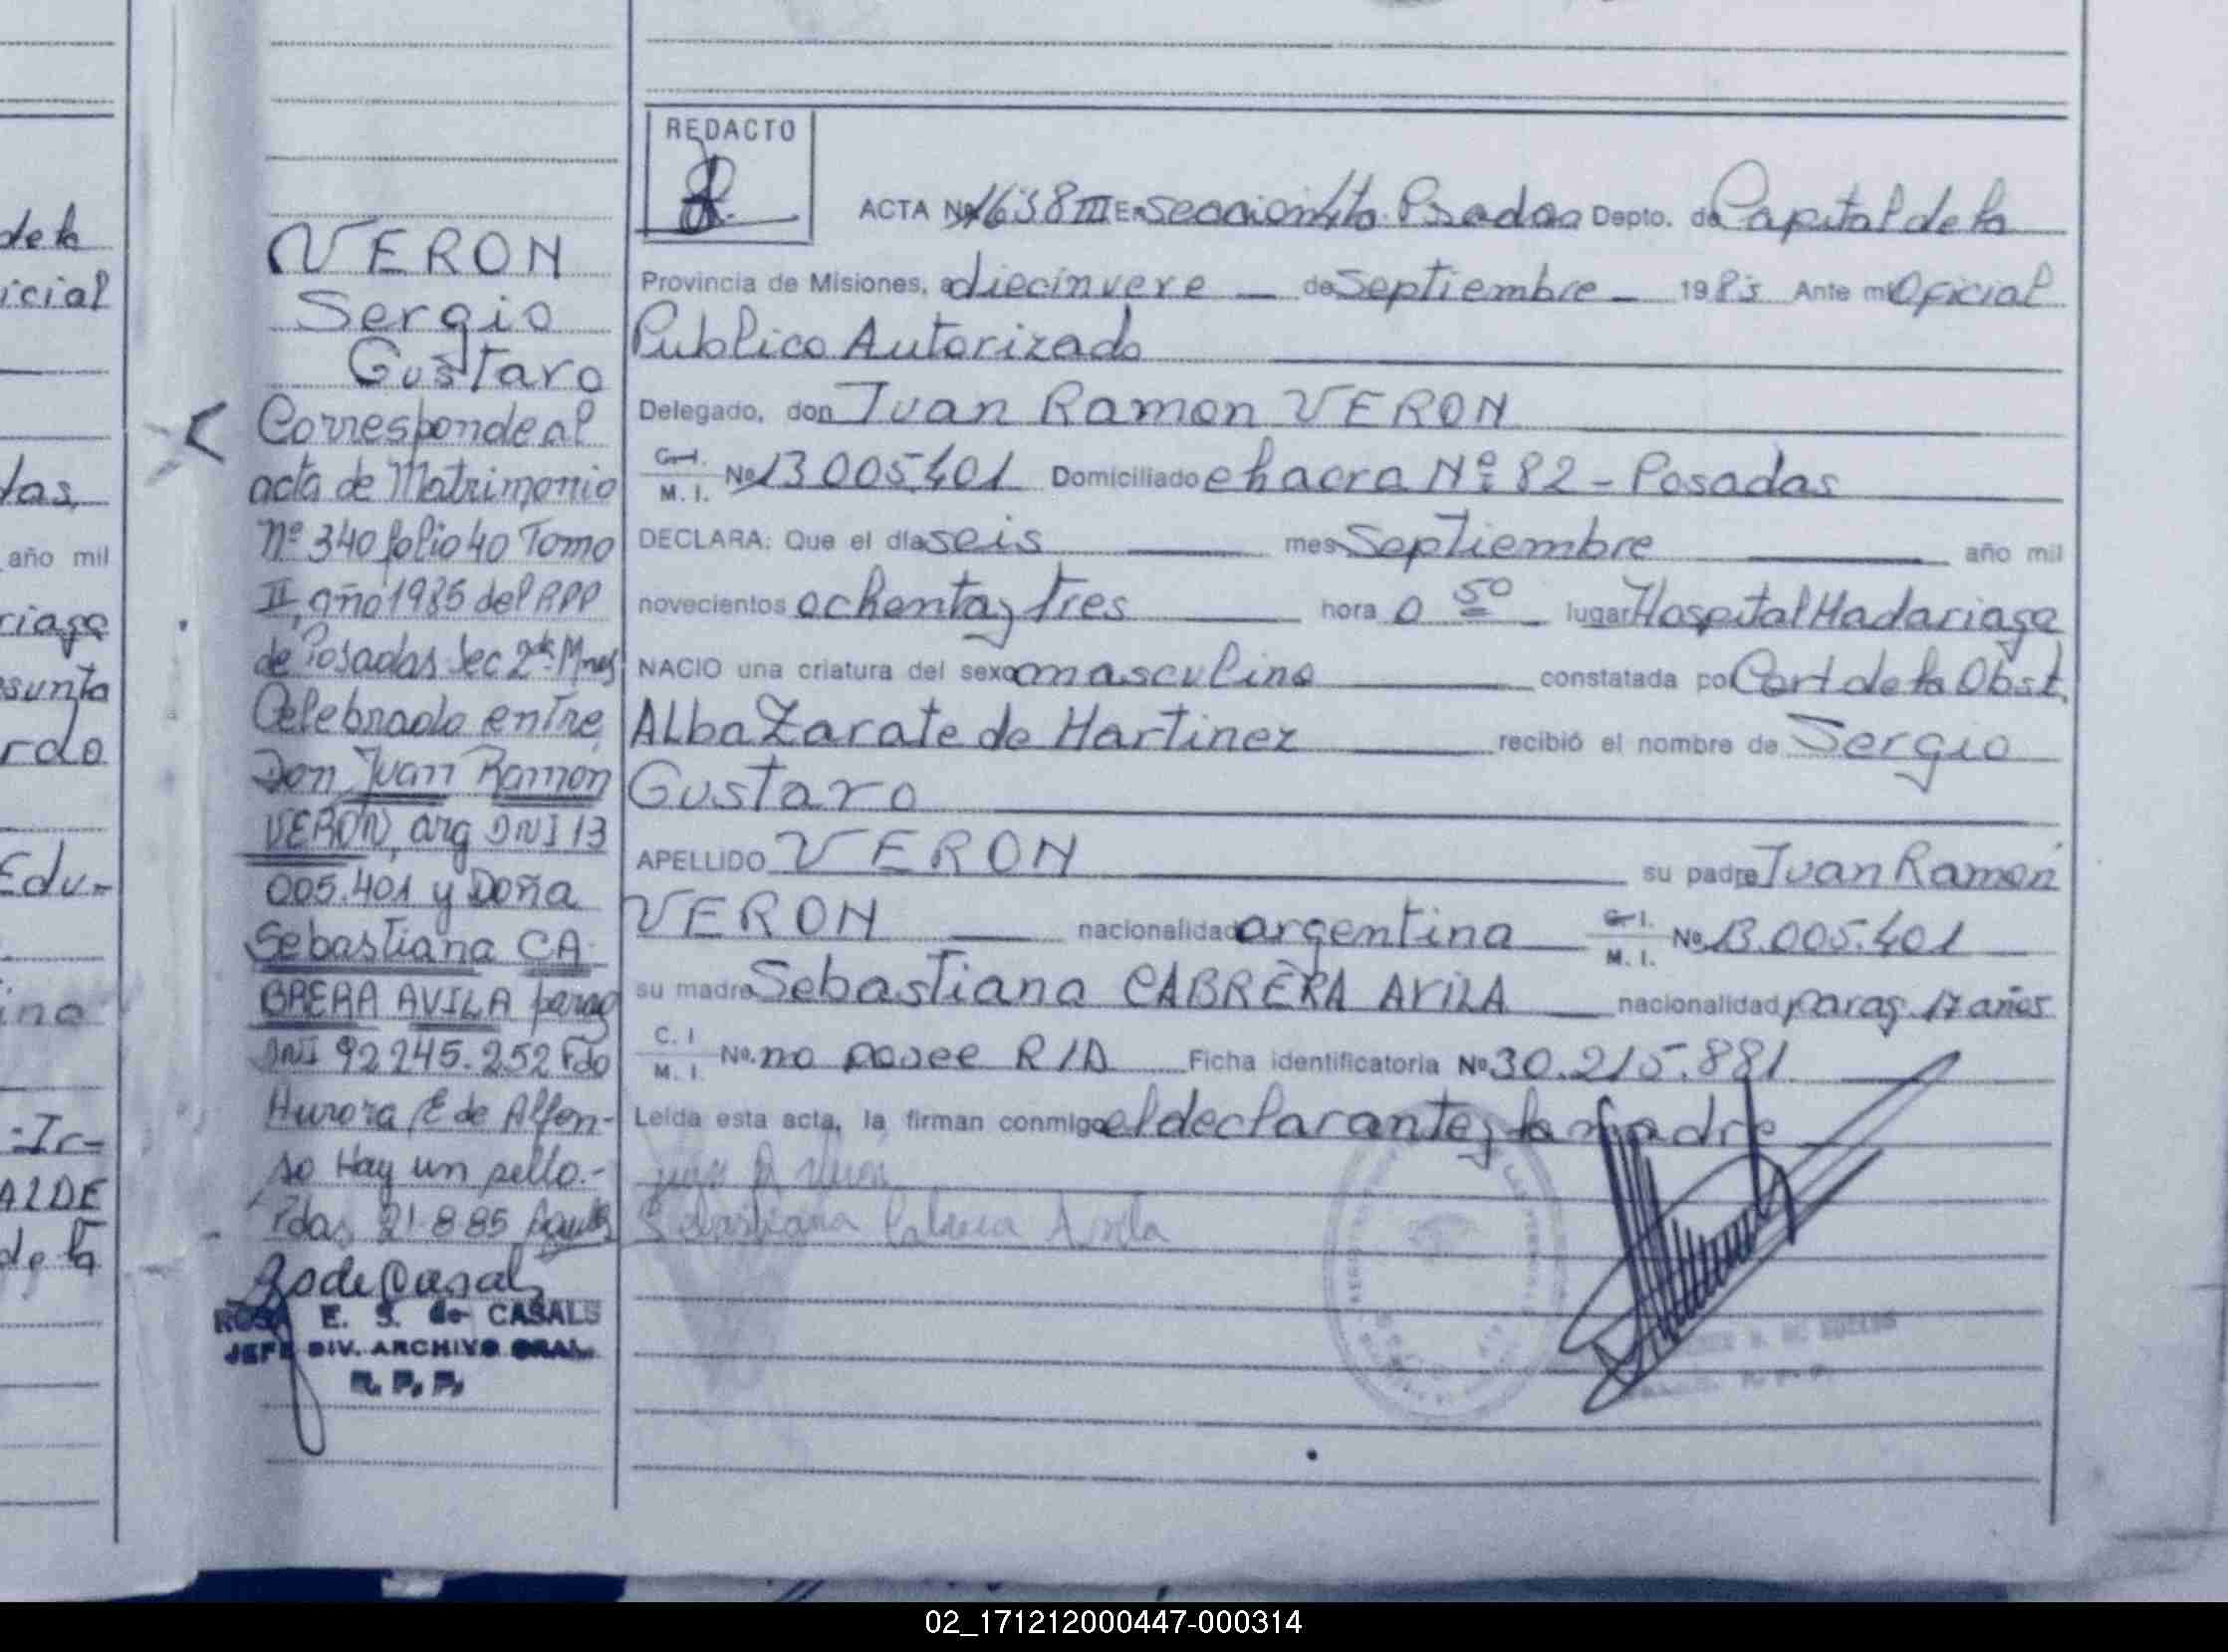 de la
icial
das,
año mil
riaga
sunta
rdo
Edu-
ino
ALDE
de la
VERON
Sergio
Gustavo
Corresponde al
acta de Matrimonio
Nº 340 folio 40 Tomo
II, año 1985 del RPP
de Posadas Sec 2da Mnes
Celebrado entre
Don Juan Ramon
VERON, arg DNI 13
005.401 y Doña
Sebastiana CA
BRERA AVILA parag
DNI 92 245.252 Fdo
Aurora E de Alfon-
so Hay un sello.-
Pdas, 21-8-85
R s de Casals
ROSA E. S. de CASALS
JEFE DIV. ARCHIVO GRAL.
R. P. P.
REDACTO
ACTA Nº 1638 III En Seccion 4ta Posadas Depto. de Capital de la
Provincia de Misiones, a diecinueve de Septiembre 1983 Ante mi Oficial
Publico Autorizado
Delegado, don Juan Ramon VERON
C. I. M. I. Nº 13 005.401 Domiciliado chacra Nº 82 - Posadas
DECLARA: Que el día seis mes Septiembre año mil
novecientos ochenta y tres hora 0 50 lugar Hospital Madariaga
NACIO una criatura del sexo masculino constatada por Cert de la Obst.
Alba Zarate de Martinez recibió el nombre de Sergio
Gustavo
APELLIDO VERON su padre Juan Ramón
VERON nacionalidad argentina C. I. M. I. Nº 13.005.401
su madre Sebastiana CABRERA AVILA nacionalidad parag. 17 años
C. I M. I. No. no posee R/A Ficha identificatoria Nº 30.215.881
Leída esta acta, la firman conmigo el declarante y la madre
Sebastiana Cabrera Avila
02_171212000447-000314